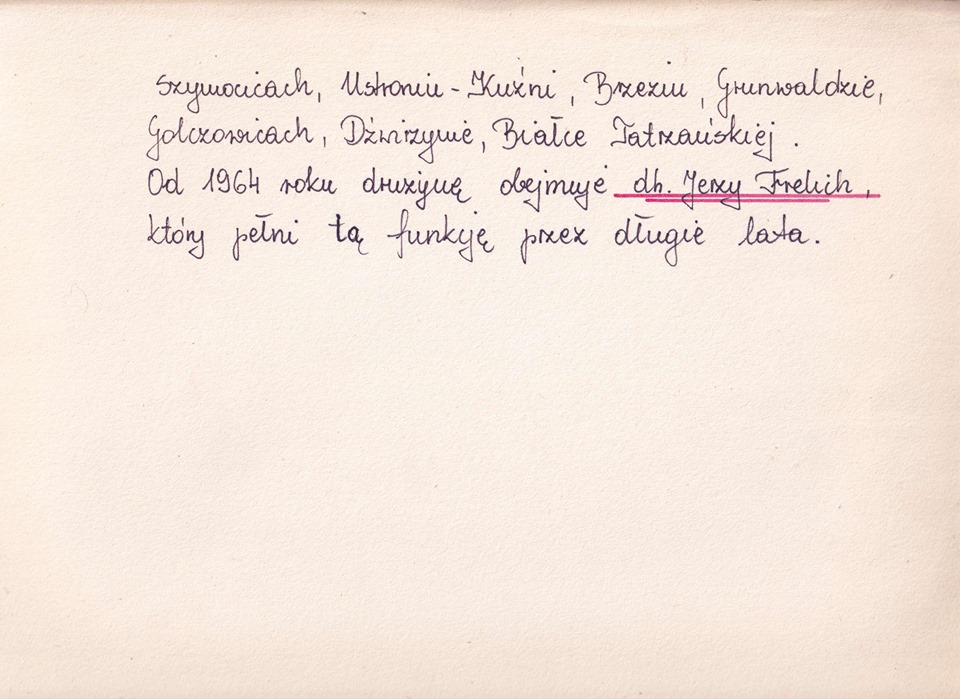 Szymocicach, Ustroniu - Kuźni, Brzeziu, Grunwaldzie,
Golczowicach, Dźwirzynie, Białce Tatrzańskiej.
Od 1964 roku drużynę obejmuje dh. Jerzy Frelich,
który pełni tą funkcję przez długie lata.